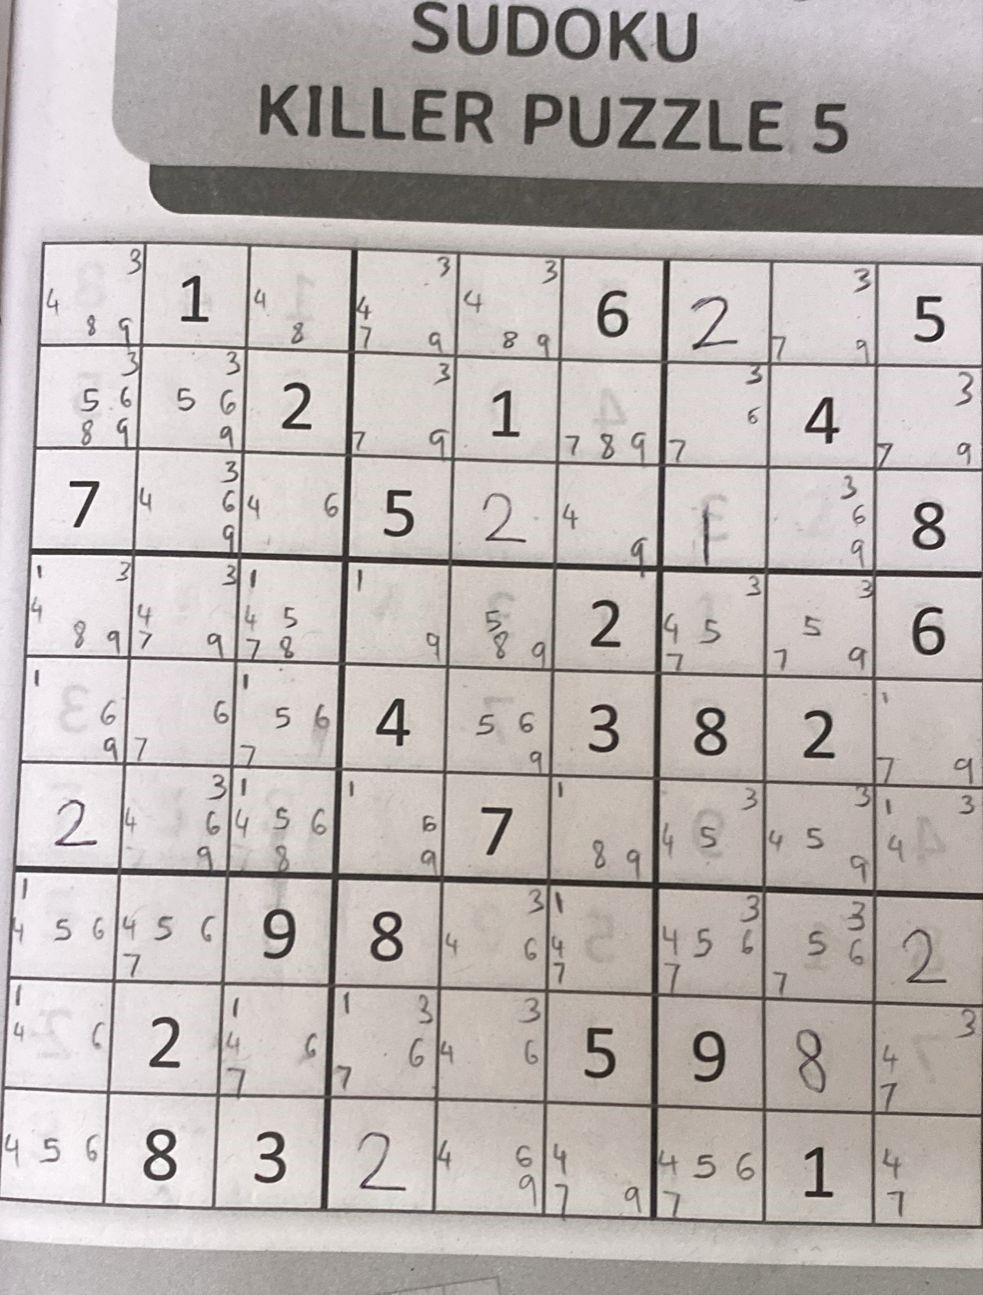 SUDOKU
KILLER PUZZLE 5
3 4 8 9 1 4 8 3 4 7 9 3 4 8 9 6 2 3 7 9 5
3 5 6 8 9 3 5 6 9 2 3 7 9 1 7 8 9 3 6 7 4 3 7 9
7 3 4 6 9 4 6 5 2 4 9 1 3 6 9 8
1 3 4 8 9 3 4 7 9 1 4 5 7 8 1 9 5 8 9 2 3 4 5 7 3 5 7 9 6
1 6 9 6 7 1 5 6 7 4 5 6 9 3 8 2 1 7 9
2 3 4 6 9 1 4 5 6 8 1 6 9 7 1 8 9 3 4 5 3 4 5 9 1 3 4
1 4 5 6 4 5 6 7 9 8 3 4 6 1 4 7 3 4 5 6 7 3 5 6 7 2
1 4 6 2 1 4 6 7 1 3 6 7 3 4 6 5 9 8 3 4 7
4 5 6 8 3 2 4 6 9 4 7 9 4 5 6 7 1 4 7